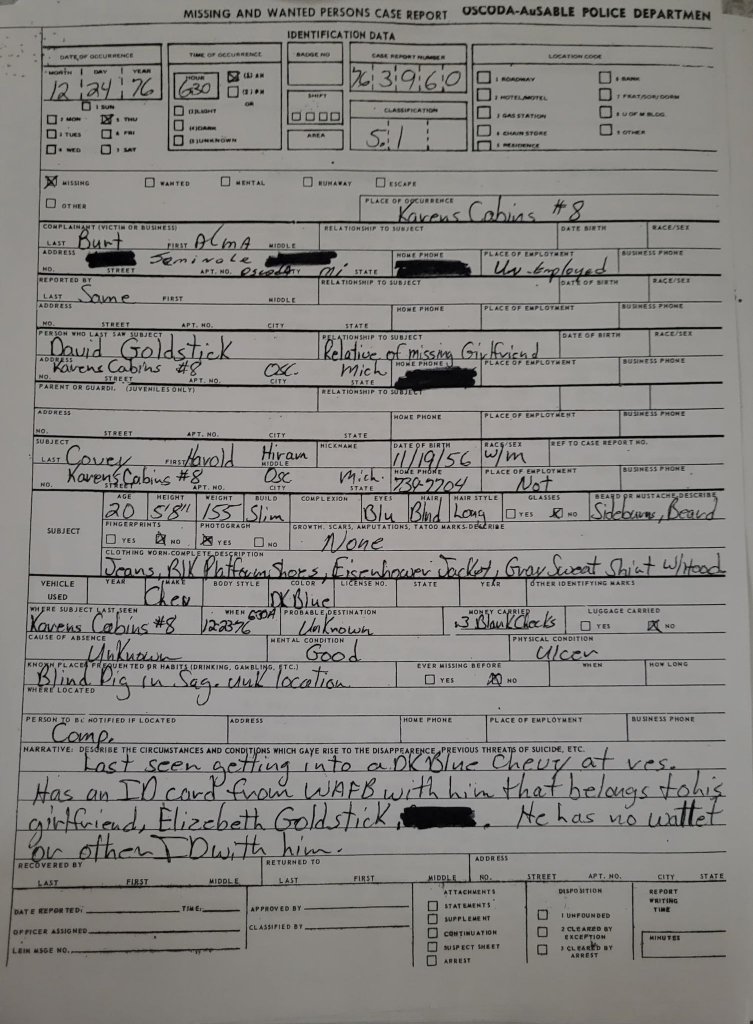 MISSING AND WANTED PERSONS CASE REPORT OSCODA-AuSABLE POLICE DEPARTMEN
IDENTIFICATION DATA
DATE OF OCCURRENCE TIME OF OCCURRENCE BADGE NO CASE REPORT NUMBER LOCATION CODE
MONTH DAY YEAR HOUR (1) AM
12 24 76 630 (2) PM 76 3960
OR
1 SUN (3) LIGHT SHIFT CLASSIFICATION
2 MON 5 THU (4) DARK 5.1
3 TUES 6 FRI (5) UNKNOWN AREA
4 WED 7 SAT
1 ROADWAY 6 BANK
2 HOTEL/MOTEL 7 FRAT/SOR/DORM
3 GAS STATION 8 U OF M BLDG
4 CHAIN STORE 9 OTHER
5 RESIDENCE
MISSING WANTED MENTAL RUNAWAY ESCAPE
OTHER PLACE OF OCCURRENCE
Kavens Cabins #8
COMPLAINANT (VICTIM OR BUSINESS) RELATIONSHIP TO SUBJECT DATE BIRTH RACE/SEX
LAST Burt FIRST AlmA MIDDLE
ADDRESS Seminole HOME PHONE PLACE OF EMPLOYMENT BUSINESS PHONE
oscoda mi Un-Employed
NO. STREET APT. NO. STATE
REPORTED BY RELATIONSHIP TO SUBJECT DATE OF BIRTH RACE/SEX
LAST Same FIRST MIDDLE
ADDRESS HOME PHONE PLACE OF EMPLOYMENT BUSINESS PHONE
NO. STREET APT. NO. CITY STATE
PERSON WHO LAST SAW SUBJECT RELATIONSHIP TO SUBJECT DATE OF BIRTH RACE/SEX
David Goldstick Relative of missing Girlfriend
ADDRESS HOME PHONE PLACE OF EMPLOYMENT BUSINESS PHONE
Kavens Cabins #8 Osc. Mich
STREET APT. NO. CITY STATE
PARENT OR GUARDI. (JUVENILES ONLY) RELATIONSHIP TO SUBJECT
ADDRESS HOME PHONE PLACE OF EMPLOYMENT BUSINESS PHONE
NO. STREET APT. NO. CITY STATE
SUBJECT NICKNAME DATE OF BIRTH RACE/SEX REF TO CASE REPORT NO.
LAST Covey FIRST Harold Hiram MIDDLE 11/19/56 w/m
Kavens Cabins #8 Osc Mich. HOME PHONE 739-7704 PLACE OF EMPLOYMENT Not BUSINESS PHONE
NO. STREET APT. NO. CITY STATE
AGE HEIGHT WEIGHT BUILD COMPLEXION EYES HAIR HAIR STYLE GLASSES BEARD OR MUSTACHE-DESCRIBE
20 5'8" 155 Slim Blu Blnd Long YES NO Sideburns, Beard
SUBJECT FINGERPRINTS PHOTOGRAPH GROWTH, SCARS, AMPUTATIONS, TATOO MARKS-DESCRIBE
YES NO YES NO None
CLOTHING WORN-COMPLETE DESCRIPTION
Jeans, Blk Platform Shoes, Eisenhower Jacket, Gray Sweat Shirt W/Hood
VEHICLE USED YEAR MAKE BODY STYLE COLOR LICENSE NO. STATE YEAR OTHER IDENTIFYING MARKS
Chev DK Blue
WHERE SUBJECT LAST SEEN WHEN 630A PROBABLE DESTINATION MONEY CARRIED LUGGAGE CARRIED
Kavens Cabins #8 12-23-76 Unknown 3 Blank Checks YES NO
CAUSE OF ABSENCE MENTAL CONDITION PHYSICAL CONDITION
Unknown Good Ulcer
KNOWN PLACES FREQUENTED OR HABITS (DRINKING, GAMBLING, ETC.) EVER MISSING BEFORE WHEN HOW LONG
Blind Pig in Sag. unk location. YES NO
WHERE LOCATED
PERSON TO BE NOTIFIED IF LOCATED ADDRESS HOME PHONE PLACE OF EMPLOYMENT BUSINESS PHONE
Comp.
NARRATIVE: DESCRIBE THE CIRCUMSTANCES AND CONDITIONS WHICH GAVE RISE TO THE DISAPPEARANCE, PREVIOUS THREATS OF SUICIDE, ETC.
Last seen getting into a DK Blue Chevy at res.
Has an ID card from WAFB with him that belongs to his
girlfriend, Elizebeth Goldstick, . He has no wallet
or other ID with him.
RECOVERED BY RETURNED TO ADDRESS
LAST FIRST MIDDLE LAST FIRST MIDDLE NO. STREET APT. NO. CITY STATE
ATTACHMENTS DISPOSITION REPORT WRITING TIME
DATE REPORTED: TIME: APPROVED BY STATEMENTS
SUPPLEMENT 1 UNFOUNDED
OFFICER ASSIGNED CLASSIFIED BY CONTINUATION 2 CLEARED BY EXCEPTION
SUSPECT SHEET 3 CLEARED BY ARREST MINUTES
LEIN MSGE NO. ARREST